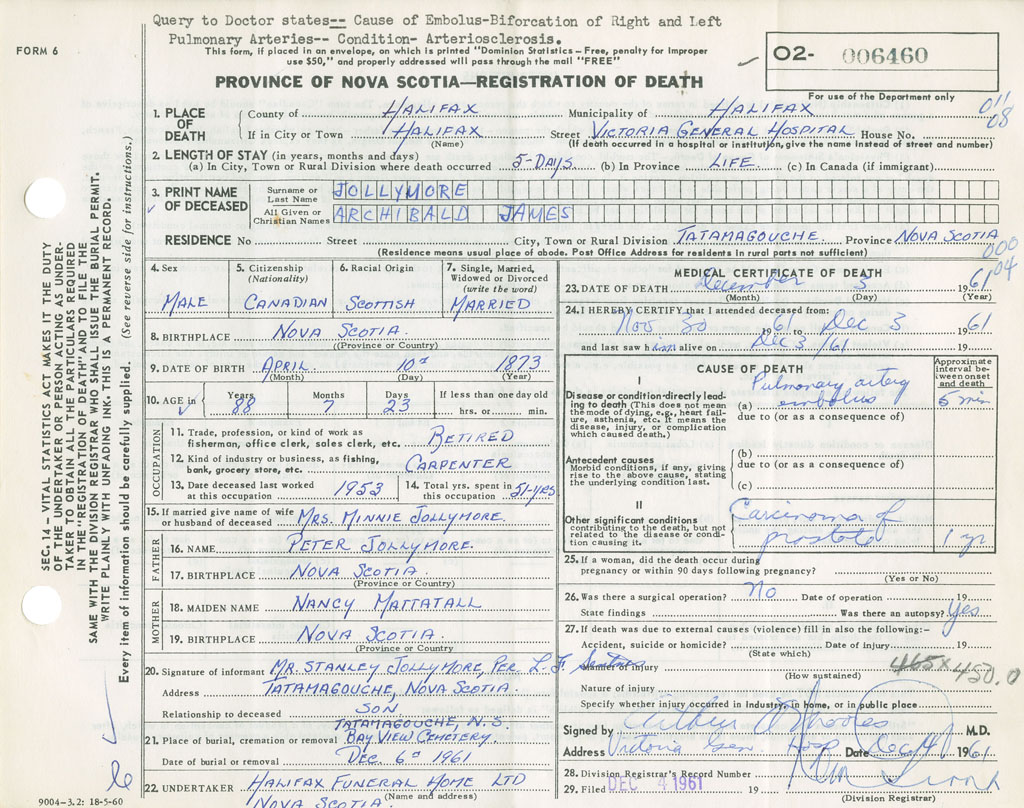 Query to Doctor states-- Cause of Embolus-Biforcation of Right and Left
Pulmonary Arteries-- Condition- Arteriosclerosis.
FORM 6
This form, if placed in an envelope, on which is printed "Dominion Statistics – Free, penalty for improper
use $50," and properly addressed will pass through the mail "FREE"
O2- 006460
For use of the Department only
PROVINCE OF NOVA SCOTIA—REGISTRATION OF DEATH
011
08
1. PLACE OF DEATH
County of HALIFAX Municipality of HALIFAX
If in City or Town HALIFAX Street VICTORIA GENERAL HOSPITAL House No.
(Name) (If death occurred in a hospital or institution, give the name instead of street and number)
2. LENGTH OF STAY (in years, months and days)
(a) In City, Town or Rural Division where death occurred 5-DAYS. (b) In Province LIFE. (c) In Canada (if immigrant)
3. PRINT NAME OF DECEASED
Surname or Last Name JOLLYMORE
All Given or Christian Names ARCHIBALD JAMES
RESIDENCE No Street City, Town or Rural Division TATAMAGOUCHE. Province NOVA SCOTIA
(Residence means usual place of abode. Post Office Address for residents in rural parts not sufficient)
000
04
4. Sex
MALE
5. Citizenship (Nationality)
CANADIAN
6. Racial Origin
SCOTTISH
7. Single, Married, Widowed or Divorced (write the word)
MARRIED
8. BIRTHPLACE NOVA SCOTIA.
(Province or Country)
9. DATE OF BIRTH APRIL 10th 1873
(Month) (Day) (Year)
10. AGE in Years 88 Months 7 Days 23 If less than one day old hrs. or min.
OCCUPATION
11. Trade, profession, or kind of work as
fisherman, office clerk, sales clerk, etc. RETIRED
12. Kind of industry or business, as fishing,
bank, grocery store, etc. CARPENTER
13. Date deceased last worked at this occupation 1953
14. Total yrs. spent in this occupation 51-yrs
15. If married give name of wife
or husband of deceased MRS. MINNIE JOLLYMORE.
FATHER
16. NAME PETER JOLLYMORE.
17. BIRTHPLACE NOVA SCOTIA
(Province or Country)
MOTHER
18. MAIDEN NAME NANCY MATTATALL
19. BIRTHPLACE NOVA SCOTIA.
(Province or Country)
20. Signature of informant MR. STANLEY JOLLYMORE, PER. L. F.
Address TATAMAGOUCHE, NOVA SCOTIA.
Relationship to deceased SON
TATAMAGOUCHE, N.S.
21. Place of burial, cremation or removal BAY VIEW CEMETERY.
Date of burial or removal DEC. 6th 1961
22. UNDERTAKER HALIFAX FUNERAL HOME LTD
(Name and address)
NOVA SCOTIA.
MEDICAL CERTIFICATE OF DEATH
23. DATE OF DEATH December 3 1961
(Month) (Day) (Year)
24. I HEREBY CERTIFY that I attended deceased from:
Nov 30 1961 to Dec 3 1961
and last saw him alive on Dec 3/61 19
CAUSE OF DEATH
Approximate interval between onset and death
I
Disease or condition directly leading to death (This does not mean the mode of dying, e.g., heart failure, asthenia, etc. It means the disease, injury, or complication which caused death.)
(a) Pulmonary artery embolus 5 min
due to (or as a consequence of)
Antecedent causes
Morbid conditions, if any, giving rise to the above cause, stating the underlying condition last.
(b)
due to (or as a consequence of)
(c)
II
Other significant conditions
contributing to the death, but not related to the disease or condition causing it.
Carcinoma of prostate 1 yr
25. If a woman, did the death occur during
pregnancy or within 90 days following pregnancy?
(Yes or No)
26. Was there a surgical operation? No Date of operation 19
State findings Was there an autopsy? Yes
27. If death was due to external causes (violence) fill in also the following:–
Accident, suicide or homicide? Date of injury 19
(State which)
Manner of injury 465X 450.0
(How sustained)
Nature of injury
Specify whether injury occurred in Industry, in home, or in public place
Signed by Arthur Rhodes M.D.
Address Victoria Gen Hosp Date Dec 4 1961
28. Division Registrar's Record Number
29. Filed DEC 4 1961 19
(Division Registrar)
SEC. 14 – VITAL STATISTICS ACT MAKES IT THE DUTY
OF THE UNDERTAKER OR PERSON ACTING AS UNDER-
TAKER TO OBTAIN ALL THE PARTICULARS REQUIRED
IN THE "REGISTRATION OF DEATH" AND TO FILE THE
SAME WITH THE DIVISION REGISTRAR WHO SHALL ISSUE THE BURIAL PERMIT.
WRITE PLAINLY WITH UNFADING INK. THIS IS A PERMANENT RECORD.
Every item of information should be carefully supplied. (See reverse side for instructions.)
9004–3.2: 18-5-60